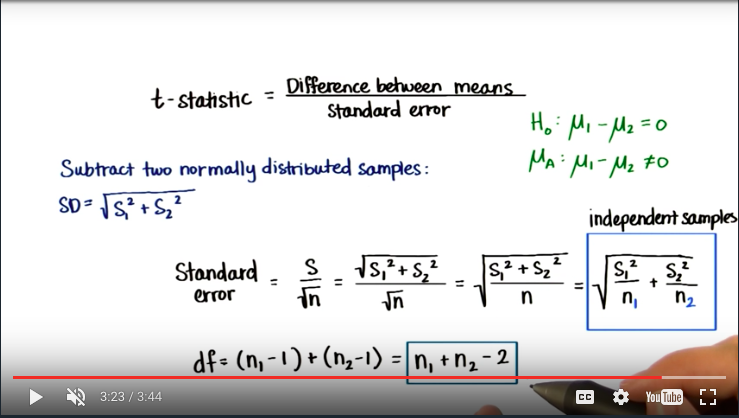 t-statistic = Difference between means / Standard error
H₀: μ₁ - μ₂ = 0
μA: μ₁ - μ₂ ≠ 0
Subtract two normally distributed samples:
SD = √(S₁² + S₂²)
independent samples
Standard error = S/√n = √(S₁² + S₂²)/√n = √((S₁² + S₂²)/n) = √(S₁²/n₁ + S₂²/n₂)
df = (n₁ - 1) + (n₂ - 1) = n₁ + n₂ - 2
3:23 / 3:44
CC
YouTube